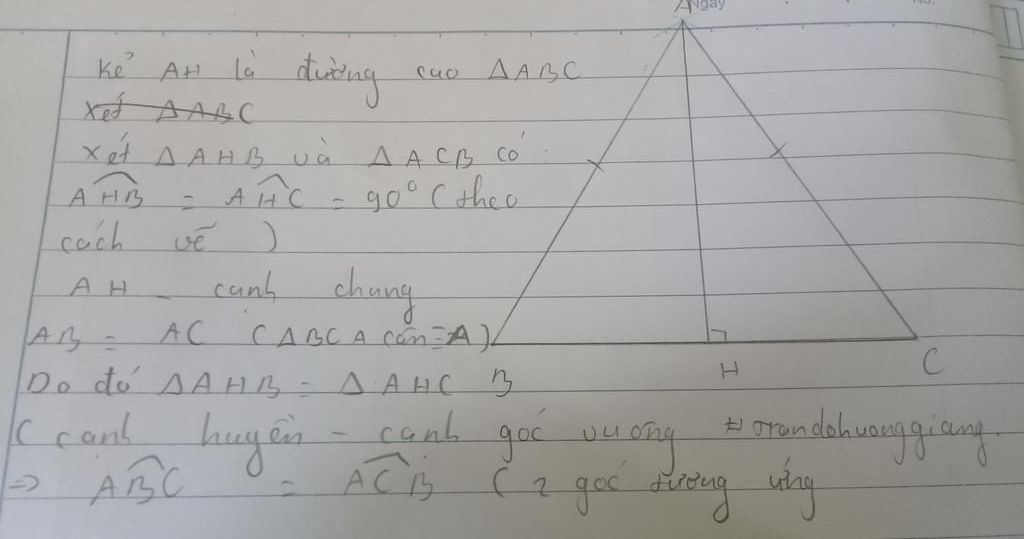 Ngày
A
Kẻ AH là đường cao ΔABC
Xét ΔABC
Xét ΔAHB và ΔACB có
AHB = AHC = 90° (theo
cách vẽ )
AH - cạnh chung
AB = AC (ΔBCA cân = A)
Do đó ΔAHB = ΔAHC B
H
C
( cạnh huyền - cạnh góc vuông #trandohuonggiang
=> ABC = ACB ( 2 góc tương ứng